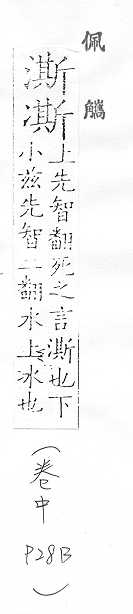 佩觿
澌凘
上先智翻死之言澌也下
小兹先智二翻水上冰也
(卷中
P28B
)